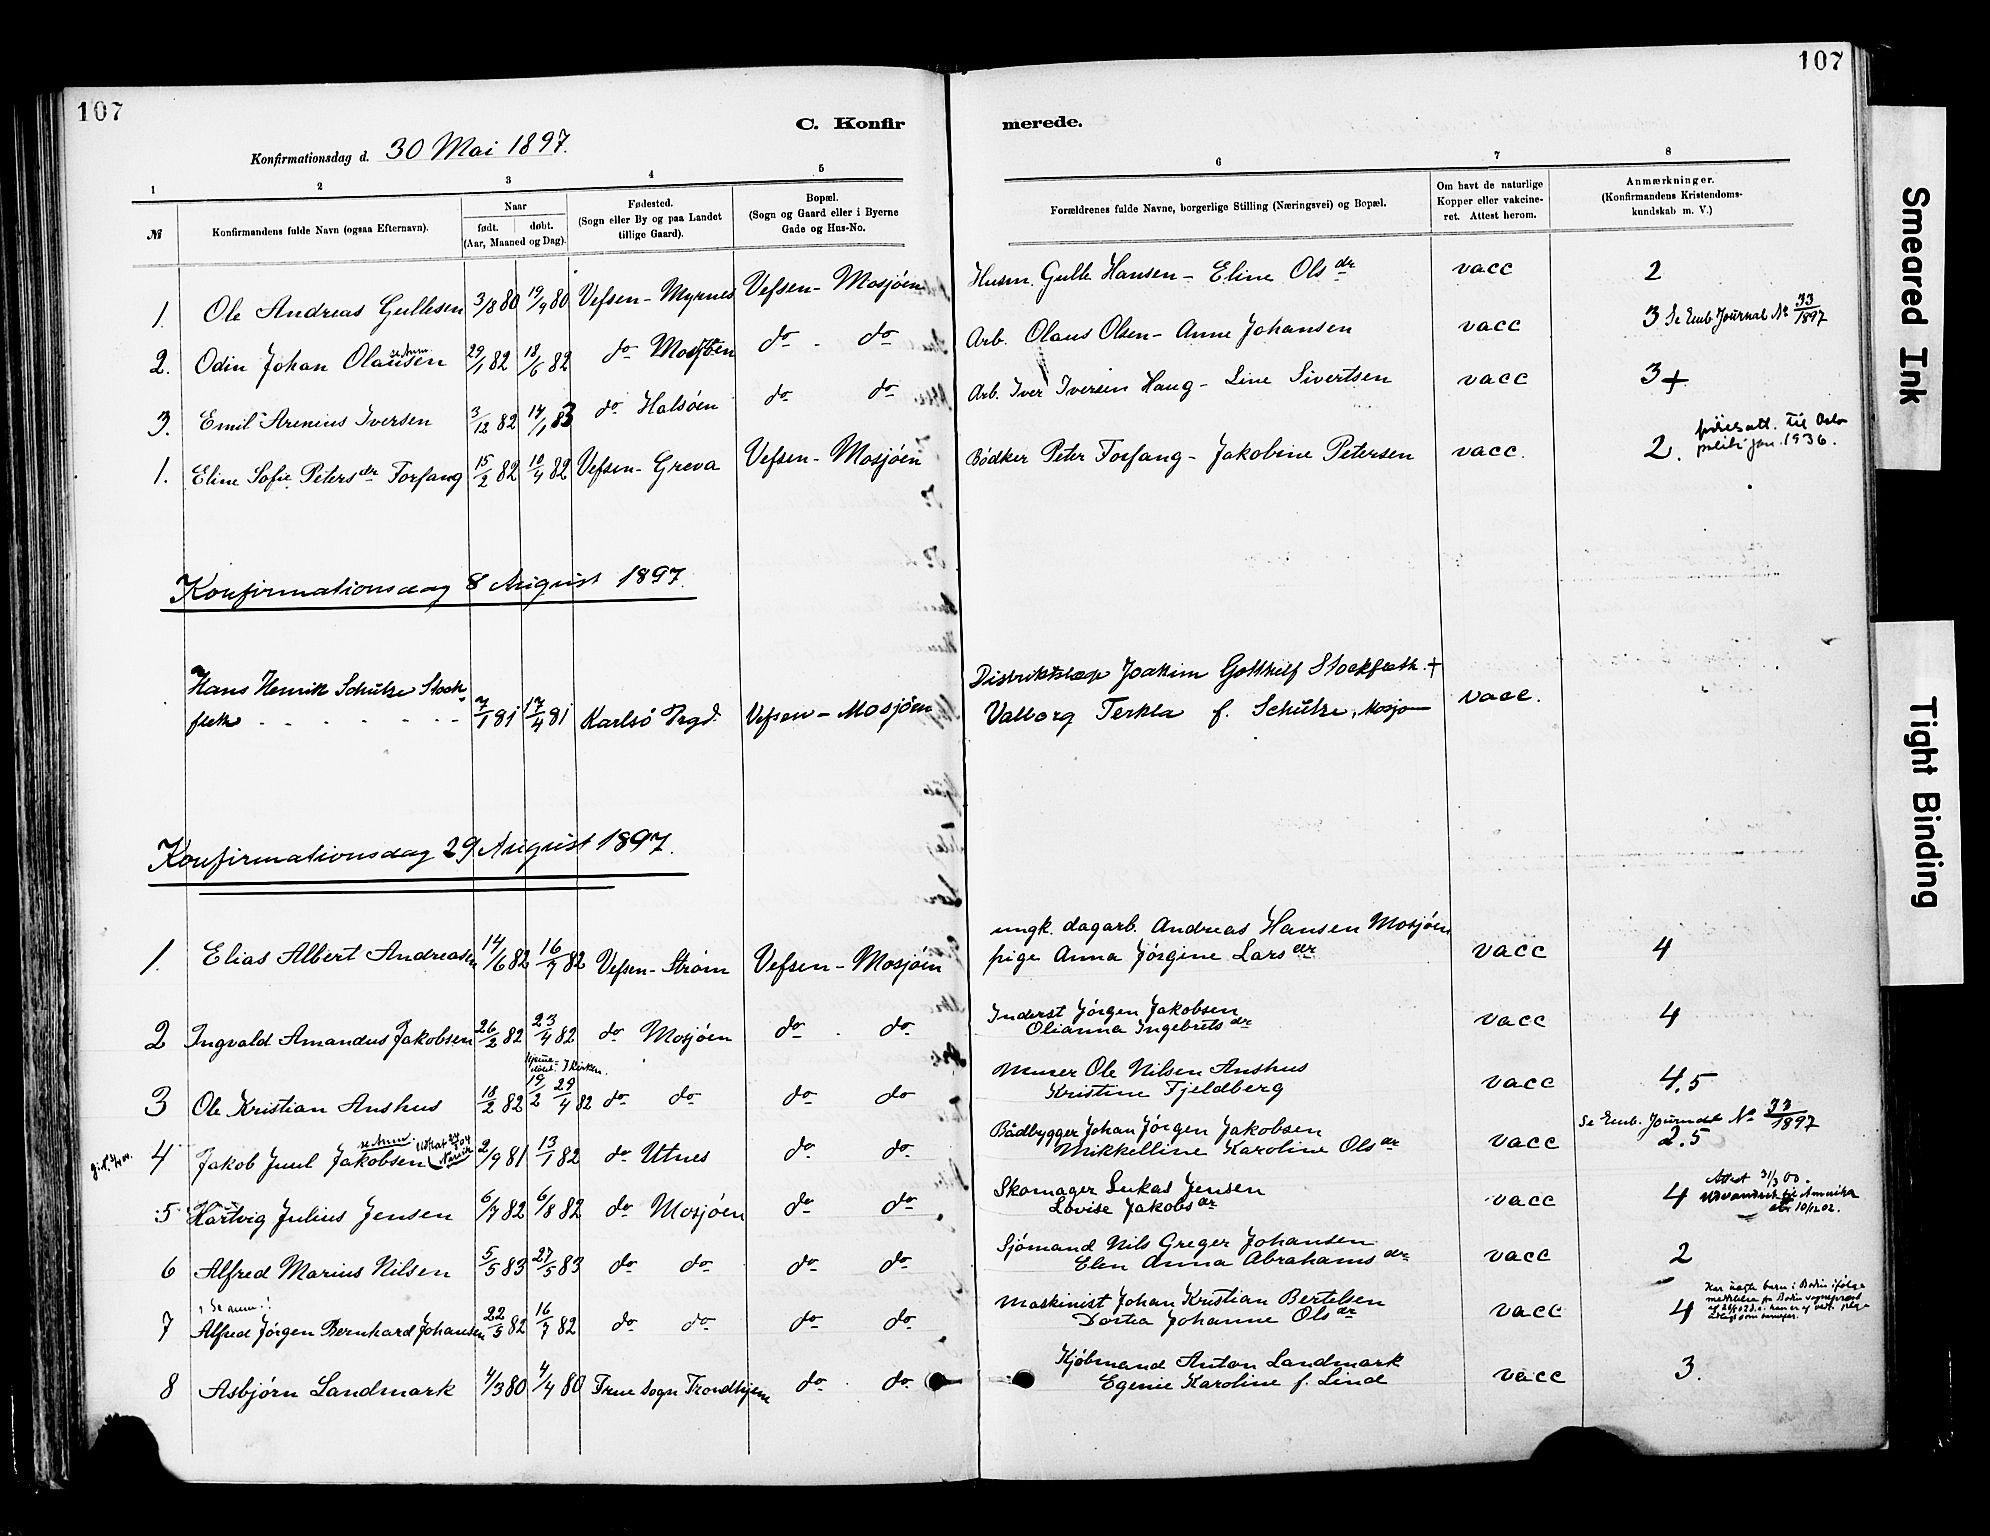 107
107
C. Konfir
merede.
Konfirmationsdag d. 30 Mai 1897.
1 2 3 4 5 6 7 8
№ Konfirmandens fulde Navn (ogsaa Efternavn). Naar født. døbt. (Aar, Maaned og Dag). Fødested. (Sogn eller By og paa Landet tillige Gaard). Bopæl. (Sogn og Gaard eller i Byerne Gade og Hus-No. Forældrenes fulde Navne, borgerlige Stilling (Næringsvei) og Bopæl. Om havt de naturlige Kopper eller vakcineret. Attest herom. Anmærkninger. (Konfirmandens Kristendomskundskab m. V.)
1. Ole Andreas Gullesen 3/8 80 19/9 80 Vefsen - Myrnes Vefsen - Mosjöen Husm. Gulle Hansen - Eline Olsdr vacc 2
2. Odin Johan Olausen se Anm 29/1 82 18/6 82 do Mosjöen do - do Arb. Olaus Olsen - Anne Johansen vacc 3 Se Emb. Journal No 33/1897
3. Emil Arenius Iversen 3/12 82 14/1 83 do Halsöen do do Arb. Iver Iversen Haug - Line Sivertsen vacc 3+
1. Eline Sofie Petersdr Forfang 15/2 82 10/4 82 Vefsen - Greva Vefsen - Mosjöen Bödker Peter Forfang - Jakobine Petersen vacc. 2. til Oslo politi jan. 1936.
Konfirmationsdag 8 August 1897.
Hans Henrik Schulze Stock-
fleth - - - - - - 7/1 81 17/4 81 Karlsö Pregd. Vefsen - Mosjöen Distriktslæge Joakim Gotthilf Stockfleth + vacc.
Valborg Terkla f. Schulze, Mosjö
Konfirmationsdag 29 August 1897.
1. Elias Albert Andreasen 14/6 82 16/7 82 Vefsen - Ström Vefsen - Mosjöen ungk. dagarb. Andreas Hansen Mosjöen vacc 4
pige Anna Jörgine Larsdr
2 Ingvald Amandus Jakobsen 26/2 82 23/4 82 do Mosjöen do - do Inderst Jörgen Jakobsen vacc 4
Olianna Ingebretsdr
hjemmedöbt - I Kirken.
3 Ole Kristian Anshus 18/2 82 19/2 29/4 82 do do do do Murer Ole Nilsen Anshus vacc 4,5
Kristine Fjeldberg
4 Jakob Juul Jakobsen se Anm. Narvik 2/9 81 13/1 82 do Utnes do do Bådbygger Johan Jörgen Jakobsen vacc Se Emb. Journal No 33/1897
Mikkelline Karoline Olsdr 2.5
5 Hartvig Julius Jensen 6/7 82 6/8 82 do Mosjöen do do Skomager Lukas Jensen vacc 4 Attest 31/3 00.
Lovise Jakobsdr Udvandret til Amerika 10/12 02.
6 Alfred Marius Nilsen 5/5 83 27/5 83 do do do do Sjömand Nils Greger Johansen vacc 2
Elen Anna Abrahamsdr
Se anm.
7 Alfred Jörgen Bernhard Johansen 22/5 82 16/7 82 do do do do Maskinist Johan Kristian Bertelsen vacc 4 Har uægte barn i Bodin ifølge meddelelse fra Bodin sognepræst
Dortea Johanne Olsdr
8 Asbjörn Landmark 4/3 80 4/4 80 Frue Sogn Trondhjem do - do Kjöbmand Anton Landmark vacc 3.
Egenie Karoline f. Lind
Smeared Ink
Tight Binding